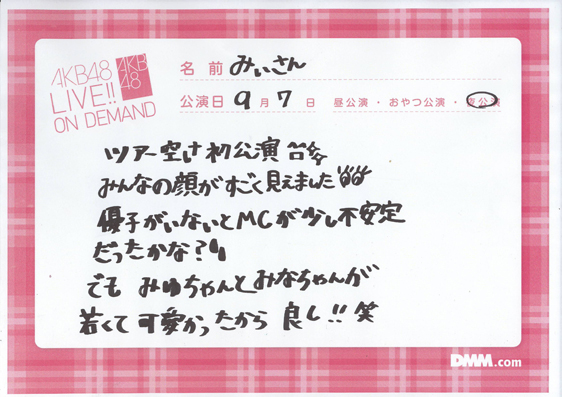 AKB48
LIVE!!
ON DEMAND
AKB
48
名前 みぃさん
公演日 9月7日 昼公演・おやつ公演・夜公演
ツアー空け初公演
みんなの顔がすごく見えました
優子がいないとMCが少し不安定
だったかな?
でも みゆちゃんとみなちゃんが
若くて可愛かったから 良し!! 笑
DMM.com